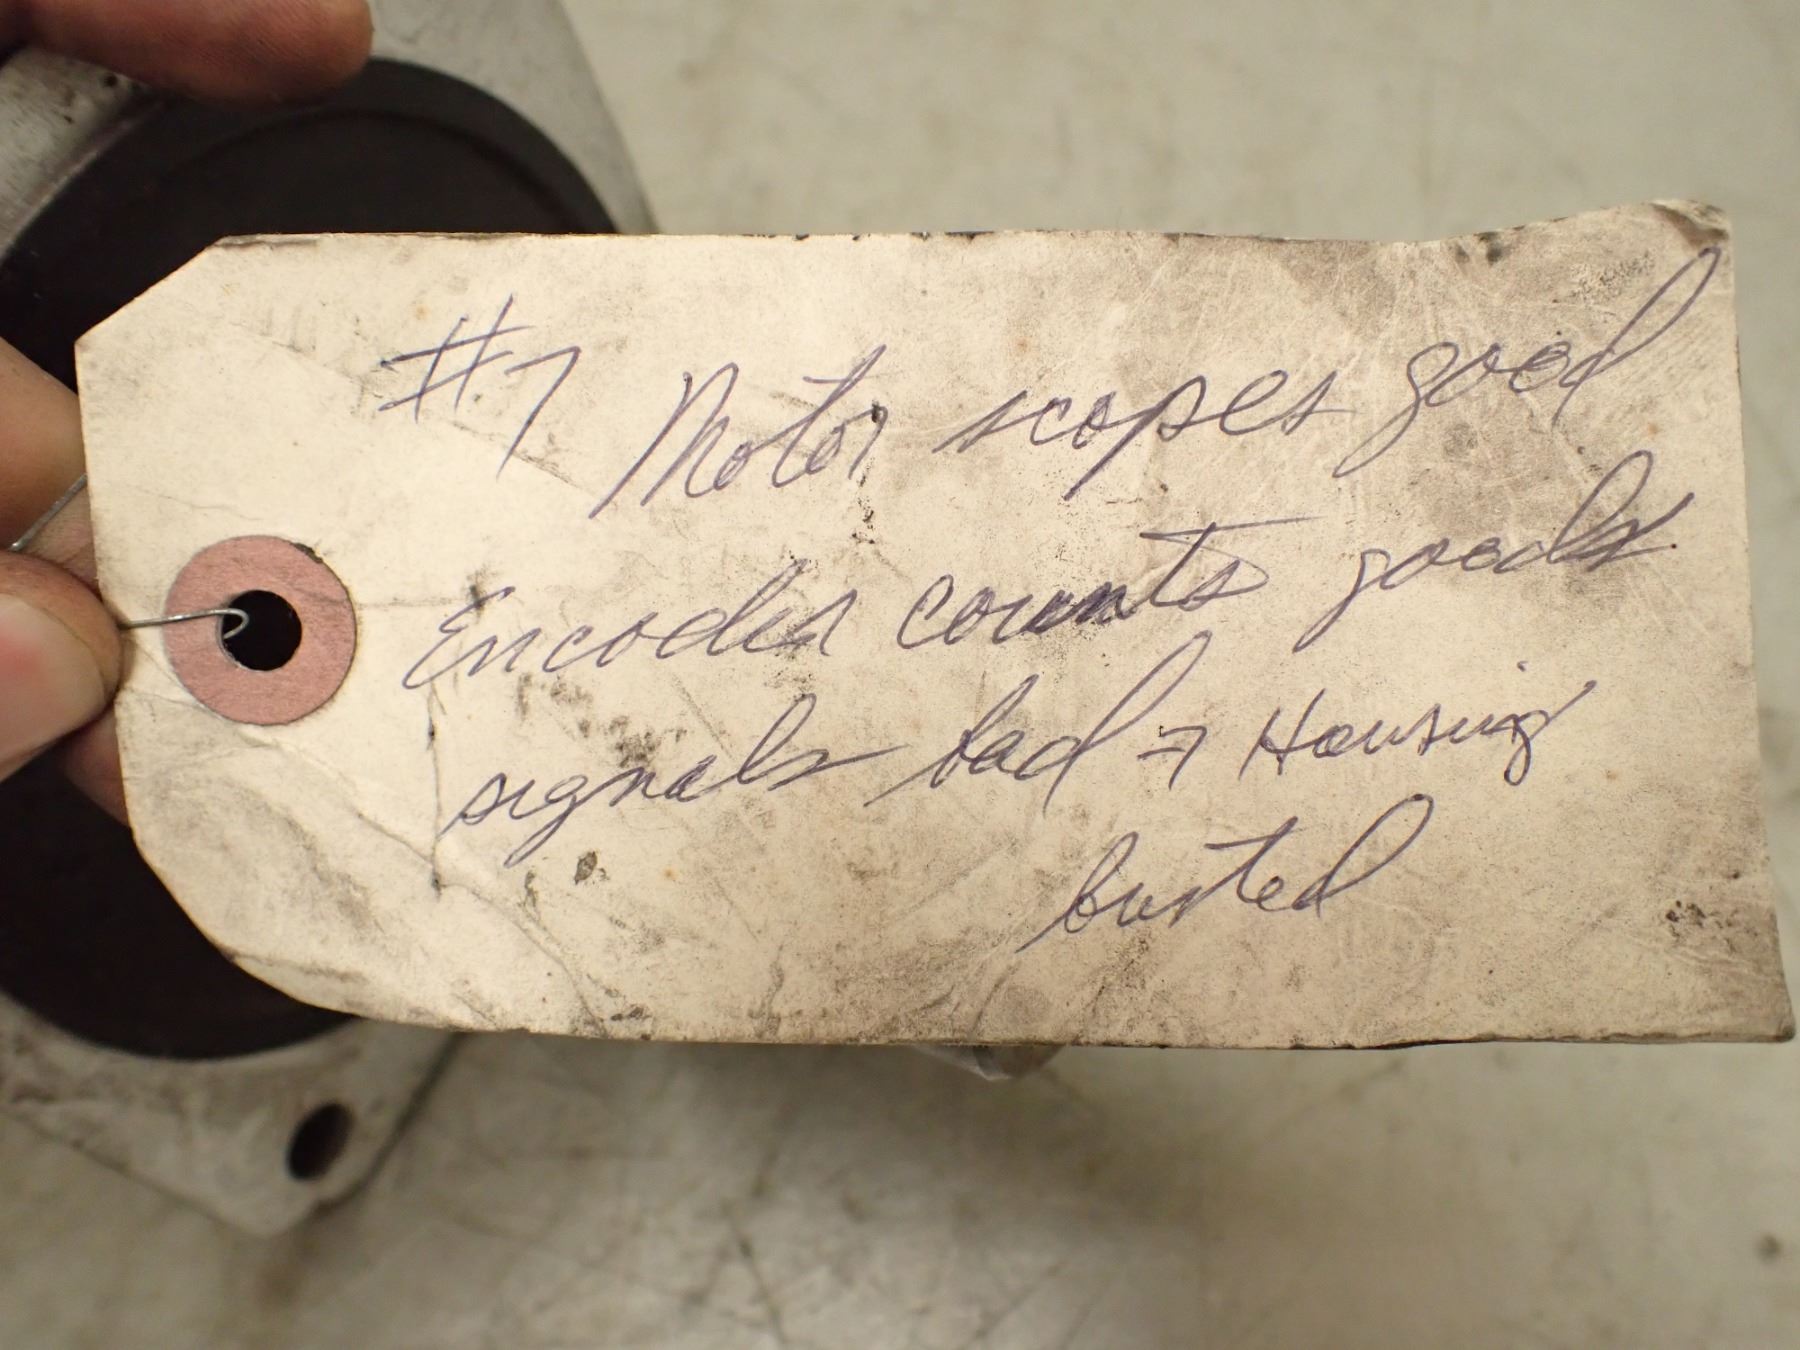 #7 Motor scopes good
Encoder counts good
signals bad → Housing
busted